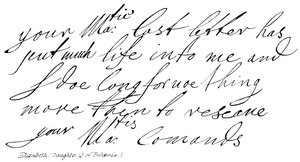 your Ma:tie last letter has
put much life into me and
I doe long for noe thing
more then to rescaue
your Ma:tis Comands
Elizabeth, daughter of Bohemia